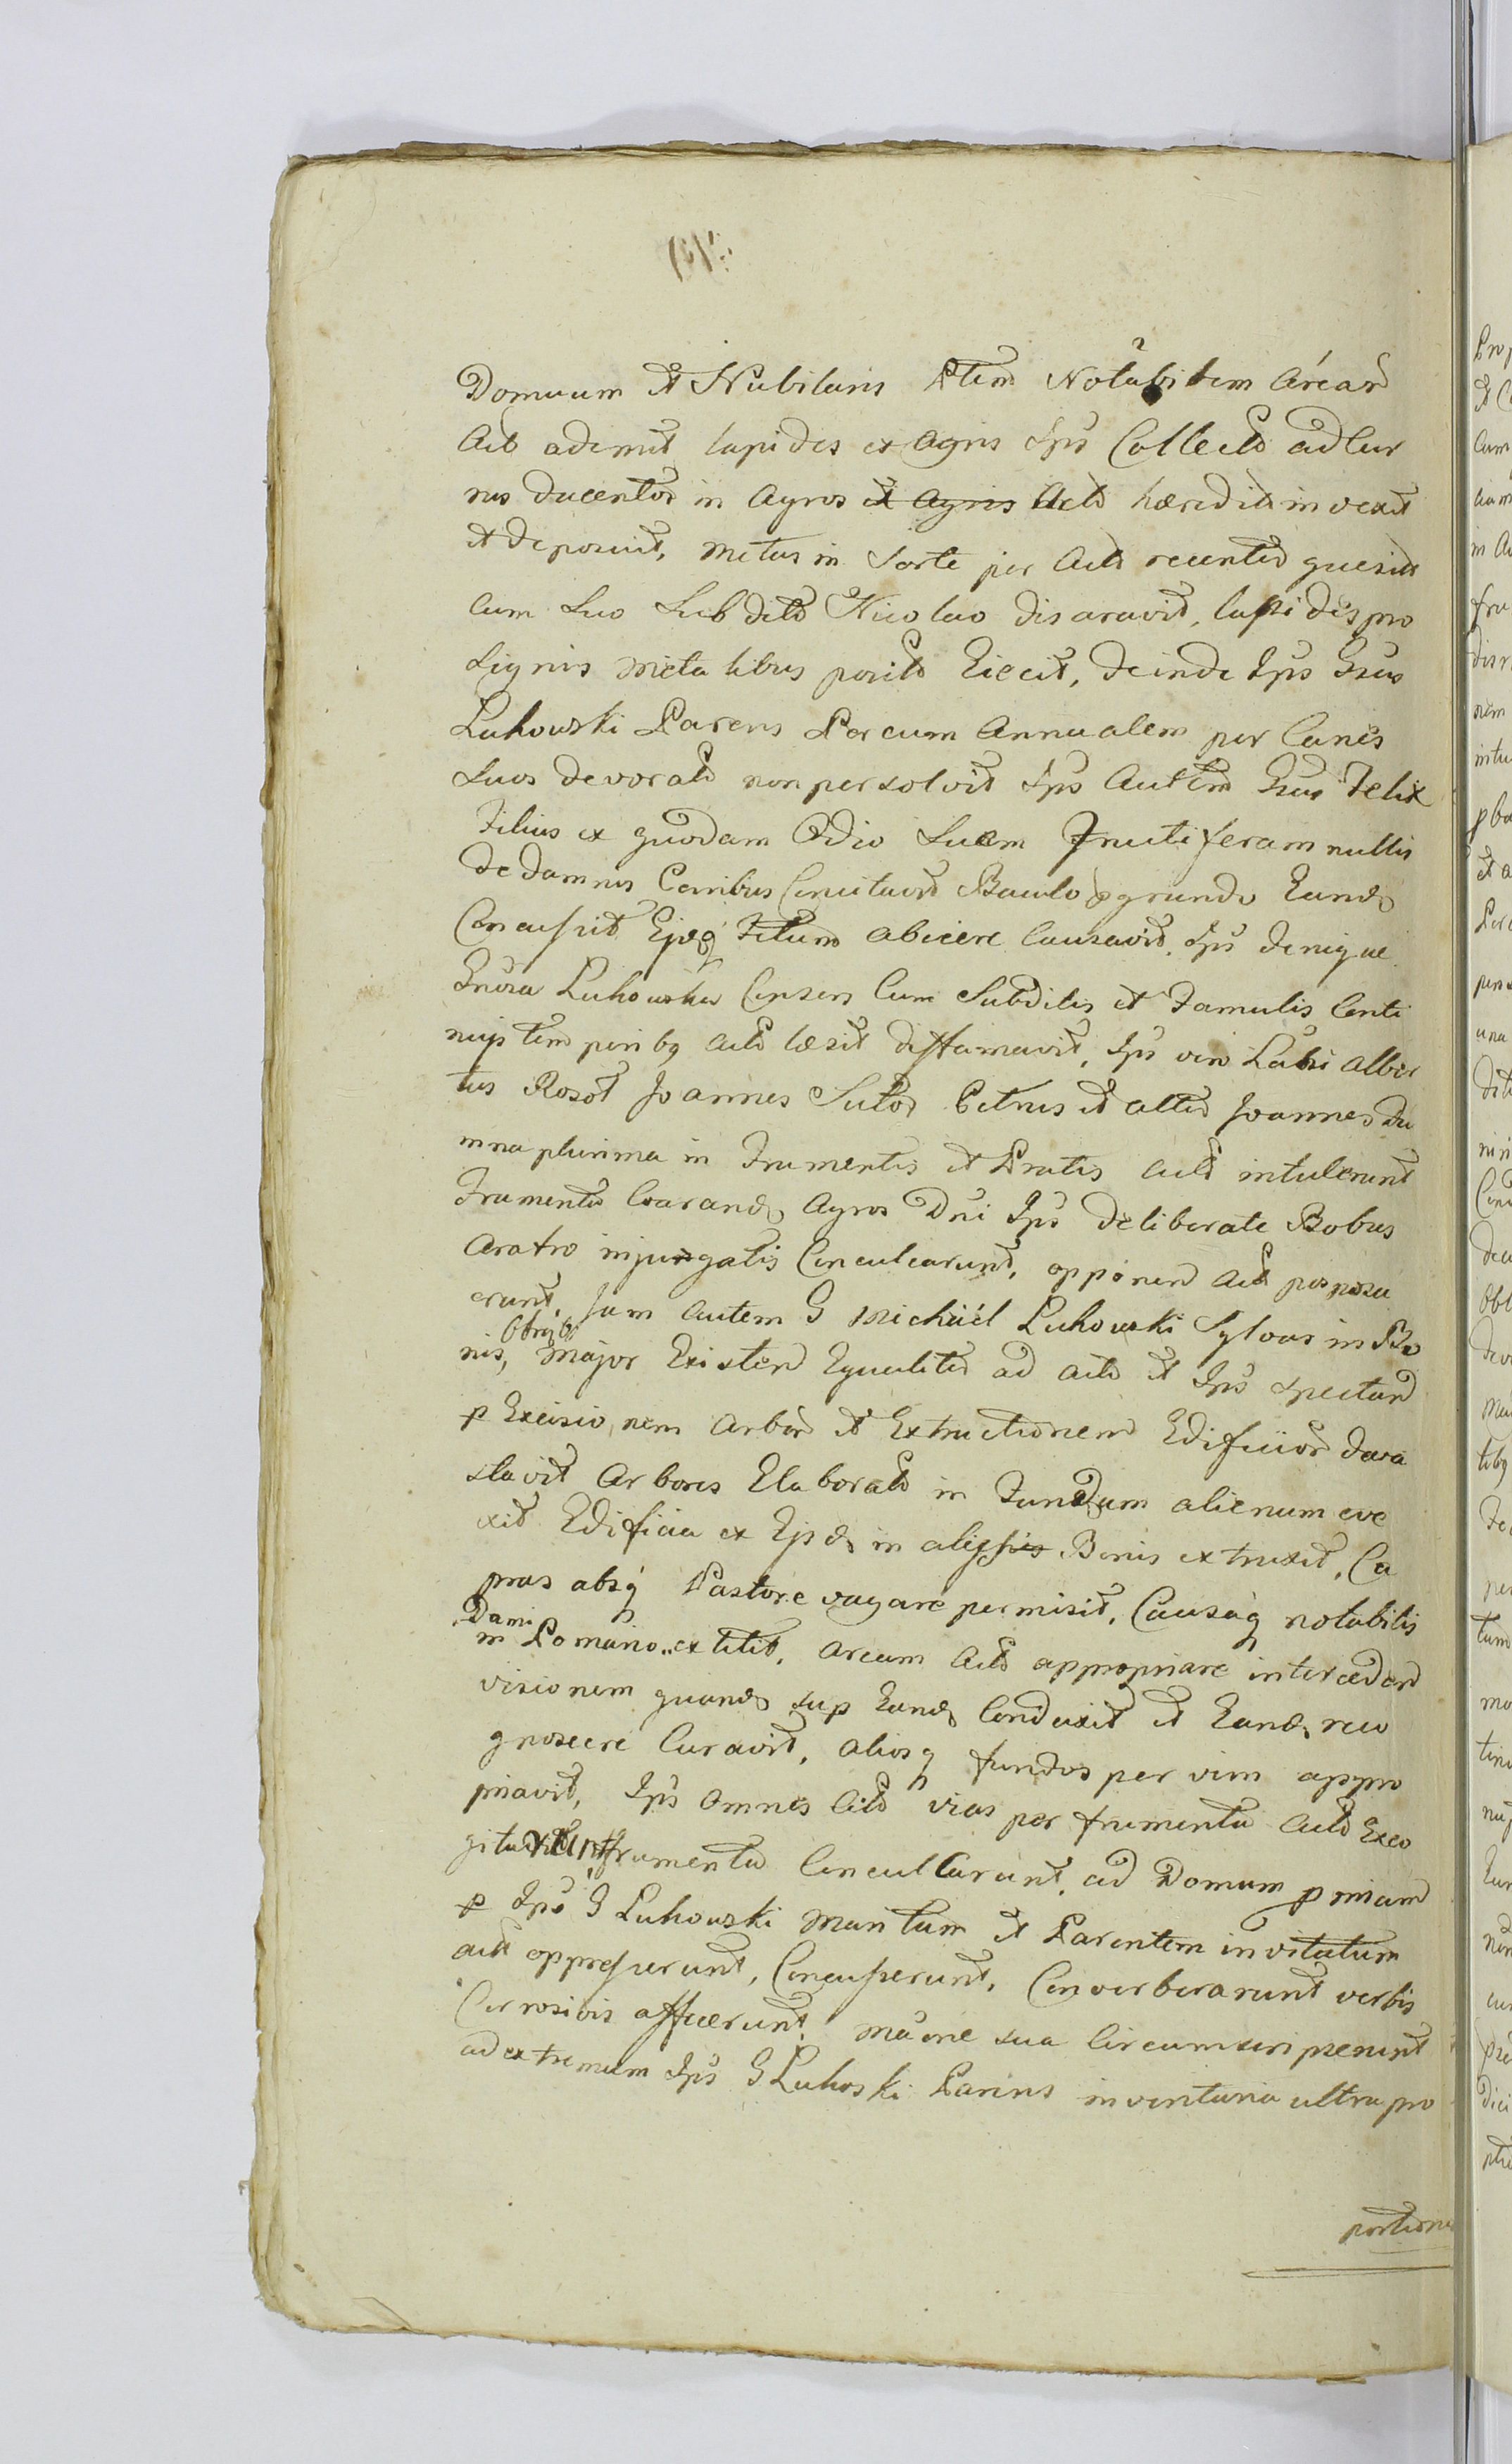 Domuum et Nubilaris Ptem Notabilem Arear
Act ademit lapides ex Agris Ips Collect ad Cur
rus ducentos in Agros et Agris Act hæredit invexit
et deposuit, metas in Sorte per Act recenter quesit
cum Suo Subdito Nicolao disaravit, lapides pro
Signis metalibus posit Eiecit, deinde Ips Gsus
Luhowski Parens Porcum Annualem per Canes
Suos devorat non persolvit Ips Autem Gsus Felix
Filius ex quodam Odio Suem Fructiferam nullis
de damnis Canibus Concitavit Baculo pgrando Eand
Concussit Ejusq Fetum abicere Causavit. Ips denique
Gnosa Luhowska Consors Cum Subditis et Famulis Conti
nuis temporibq act læsit diffamavit, Ips vero Labsi Alber
tus Rosoł Joannes Sutor Petrus et alter Joannes Da
mna plurima in Frumentis et Pratis act intulerunt
Frumenta Coarand Agros Dni Ips deliberate Bobus
Aratro injungatis Conculcarunt, opponen Act posposu
erunt. Jam autem G Michaël Luhowski Sylvas in Bo
nis, Major Existen Equaliter ad act et Ips spectan
p Excisionem Arbor et Extructionem Edificior Deva
stavit Arbores Elaborat in Fundum alienum eve
xit Edificia ex Ejsd in aliis Bonis extruxit, Ca
pras absq Pastore vagare permisit, Causaq notabilis
Dami
in Pomario extitit, Aream Act appropriare interceden
visionem quand sup Eand Conduxit et Eand reco
gnoscere Curavit, aliosq fundos per vim appro
priavit, Ips Omnes Act vias per frumenta Act Exco
gitarunt frumenta Conculcarunt, ad Domum priam
p Ips G Luhowski Maritum et Parentem invitatum
act oppresserunt, Concusserunt, Converberarunt verbis
Corrosivis affecerunt, maone sua Circumscripserunt
ad extremum Ips G Luhoski Parens inventaria ultra pro
portione